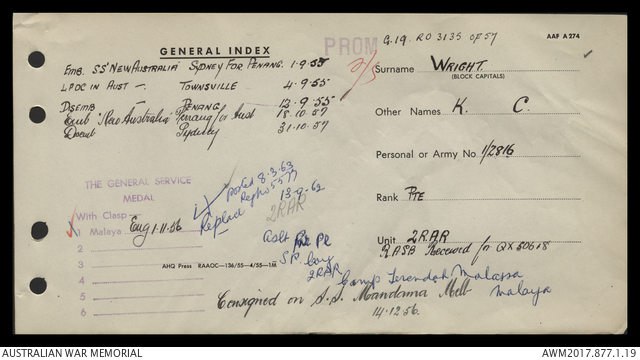 GENERAL INDEX
PROM
G.19. RO 3135 OF 57
AAF A 274
Emb. SS 'New Australia' Sydney For Penang. 1.9.55
LPOC in Aust — Townsville 4.9.55
Disemb — Penang 13.9.55
Emb 'New Australia' Penang for Aust 18.10.57
Disemb Sydney 31.10.57
Surname WRIGHT
(BLOCK CAPITALS)
Other Names K. C.
Personal or Army No. 1/2816
Rank PTE
Unit 2RAR
RASB Received for QX50618
THE GENERAL SERVICE
MEDAL
With Clasp—
1 Malaya Eng 1.11.56
2
3
4
5
6
posted 8.3.63
Replaced 13.9.62
2RAR
Pl
2RAR
AHQ Press RAAOC—136/55—4/55—1M
Camp Terendah Malacca
Malaya
Consigned on S.S. Mandama Melb
14.12.56.
AUSTRALIAN WAR MEMORIAL
AWM2017.877.1.19